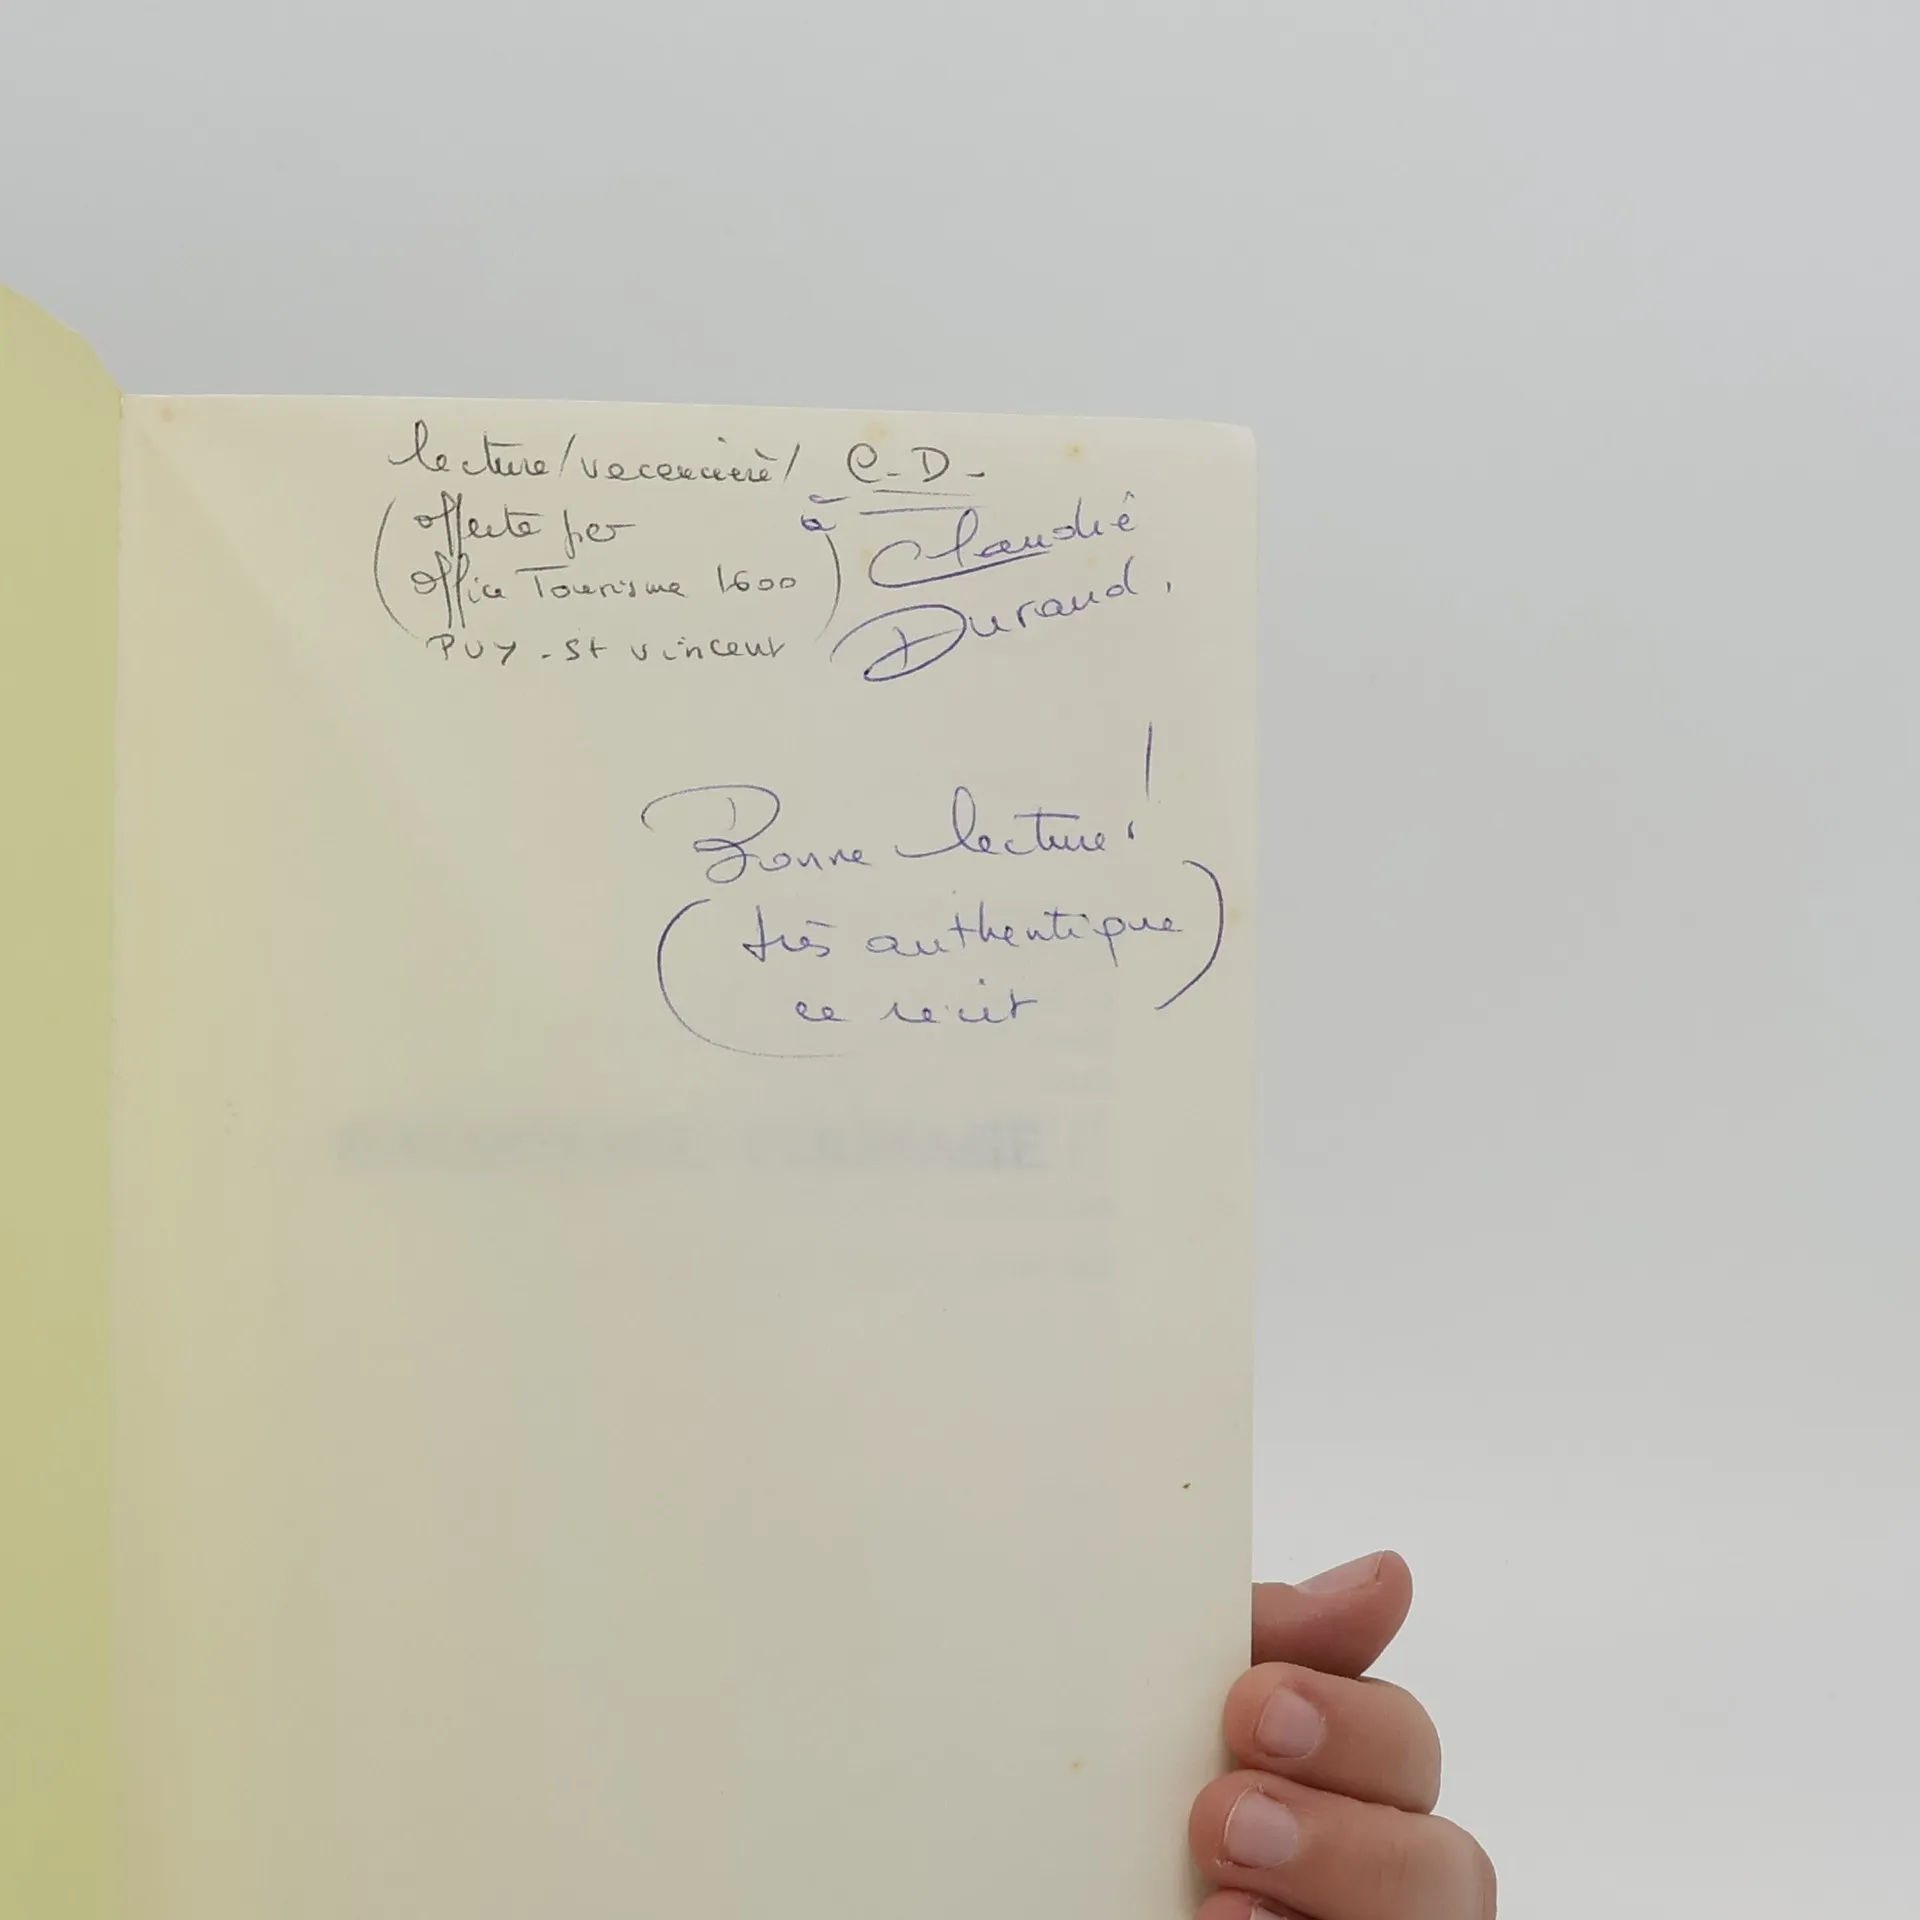 lecture/vacancière/ C-D-
(offerte par
Office Tourisme 1600
PUY-St Vincent)
à Claudie
Durand.
Bonne lecture!
(très authentique
ce récit)